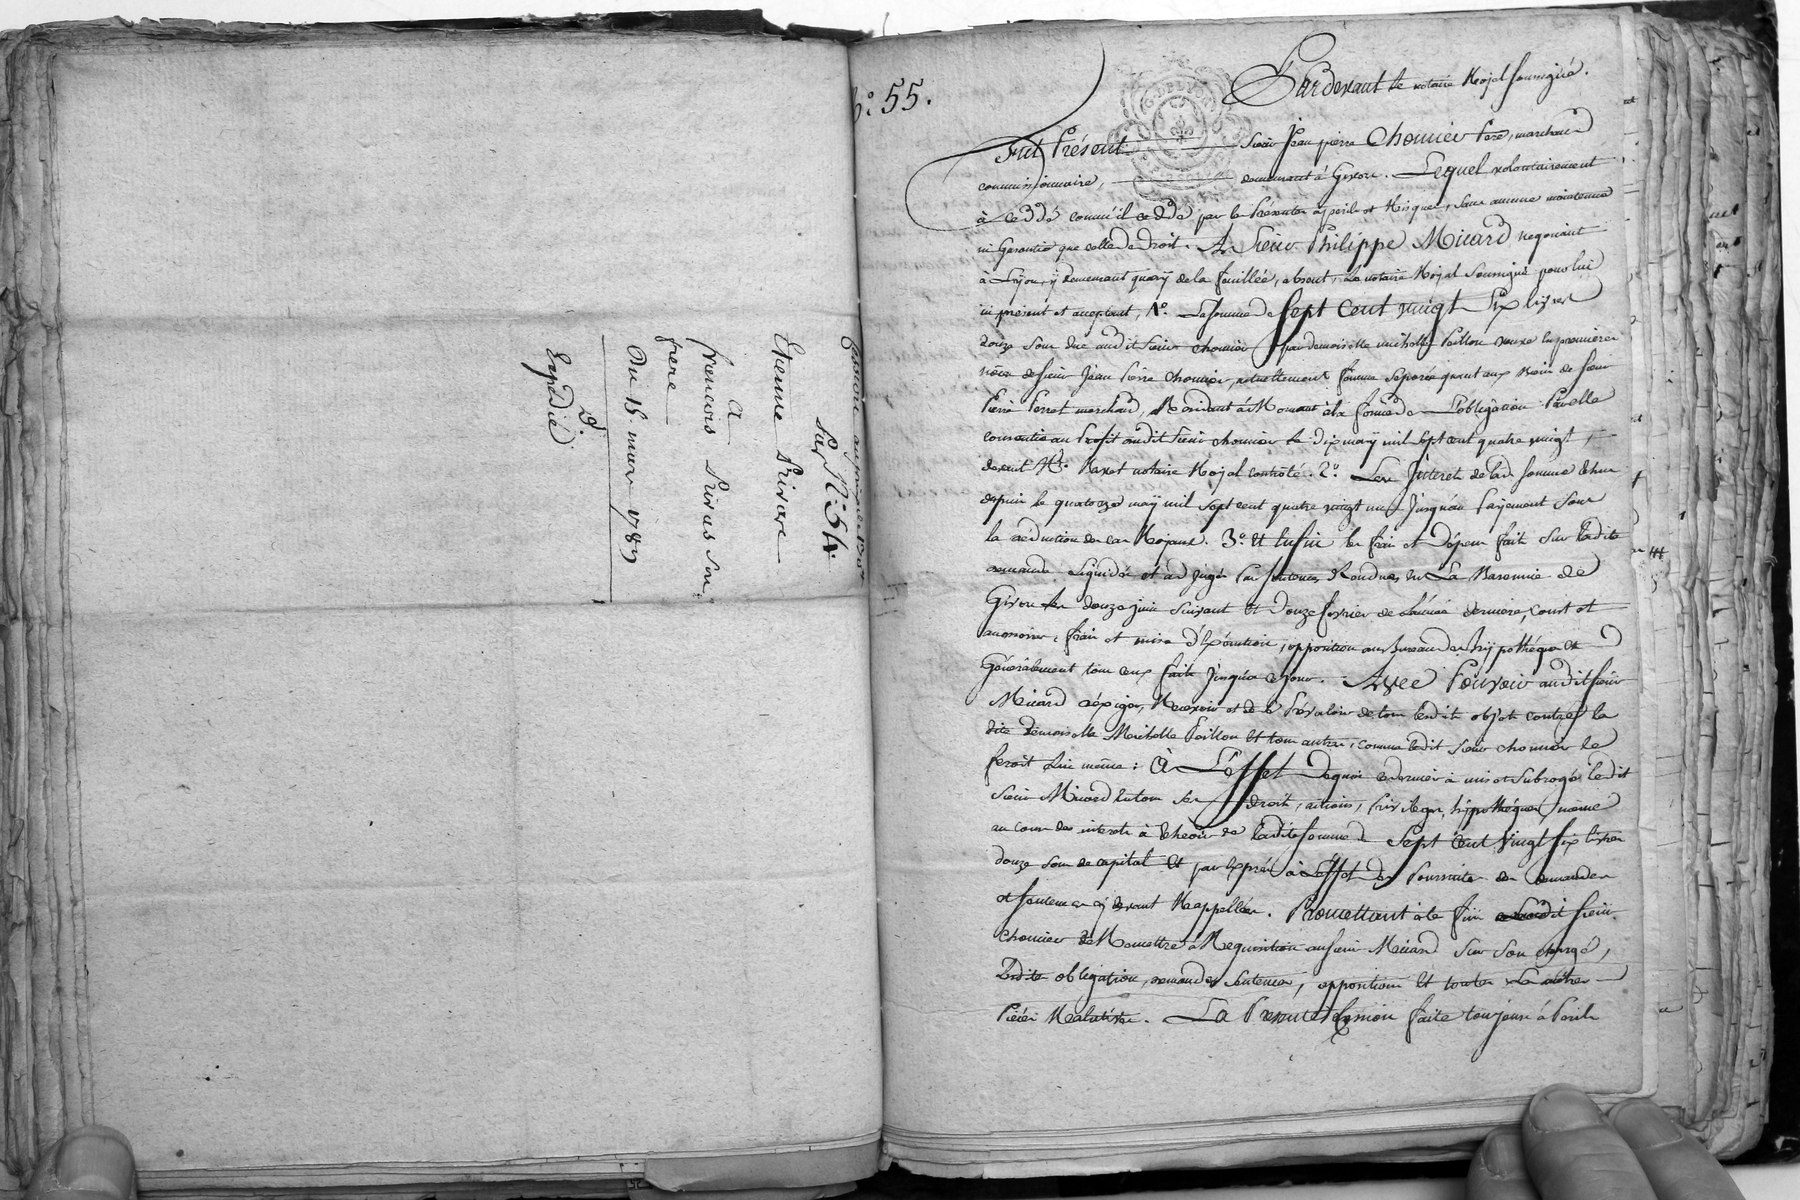 Cession
Sup. N.° 54.
Etienne Privas
a
francois Privas son
frere
Du 18. mars 1789
D.
Expédié
N.° 55.
G. DE LYON
Pardevant le notaire Royal soussigné.
Fut Présent sieur Jean pierre Chomier Pere, marchand
commissionnaire, demeurant à Givors. Lequel volontairement
à cedé comme il cede par les Présentes à perils et Risques, sans aucune maintenue
ni Garantie que celle de droit. A Sieur Philippe Micard negociant
à Lyon, y demeurant quay de la feuillée, absent, le notaire Royal soussigné pour lui
ici présent et acceptant, 1°. La somme de Sept cent vingt Six livres
douze sous due audit sieur chomier par demoiselle michelle Paillon veuve en premieres
nôces de sieur Jean Pierre chomier, actuellement femme separée quant aux biens de sieur
Pierre Perret marchand, Residant à Mornant à la forme de L'obligation Par elle
consentie au Profit dudit sieur chomier le dix may mil sept cent quatre vingt,
devant Me. notaire Royal controlé. 2°. Les Interets de lad. somme échus
depuis le quatorze may mil sept cent quatre vingt un Jusqu'au Payement sous
la deduction de cas Royaux. 3°. Et Enfin les frais et dépens faits sur ladite
demande liquidés et adjugés Par sentences Rendues en La Baronnie de
Givors les douze juin suivant et douze fevrier de L'année derniere, court et
accessoires, frais et mise d'Exécution, opposition au bureau des hypothéques et
Généralement tous ceux faits Jusqu'a ce jour. Avec Pouvoir audit sieur
Micard d'éxiger, Recevoir et de se Prévaloir de tous lesdits objets contre la
dite demoiselle Michelle Paillon et tous autres, comme ledit sieur chomier le
feroit Lui même: à L'effet de quoi ce dernier à mis et subrogé ledit
sieur Micard en tous ses droits, actions, Privileges, hypothéques, même
au cours des interets à échoir de ladite somme de Sept Cent Vingt Six livres
douze sous de capital et par Exprés à L'effet des Poursuites des demandes
et sentences cy devant Rappellées. Promettant à cette fin ledit sieur
chomier de Remettre à Requisition au sieur Micard sur son chargé,
Ladite obligation, demandes sentences, oppositions et toutes les autres
Piéces Relatives. La Presente Cession faite toujours à Perils